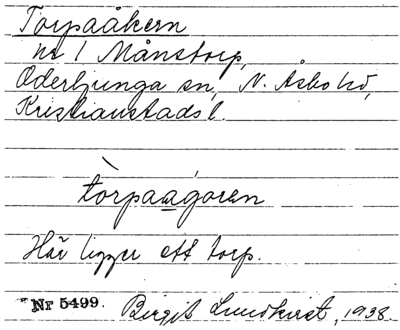 Torpaåkern
nr 1 Månstorp,
Oderljunga sn, N. Åsbo hd,
Kristianstads l.
tòrpaagoren
Här ligger ett torp.
Nr 5499. Birgit Lundkvist, 1938